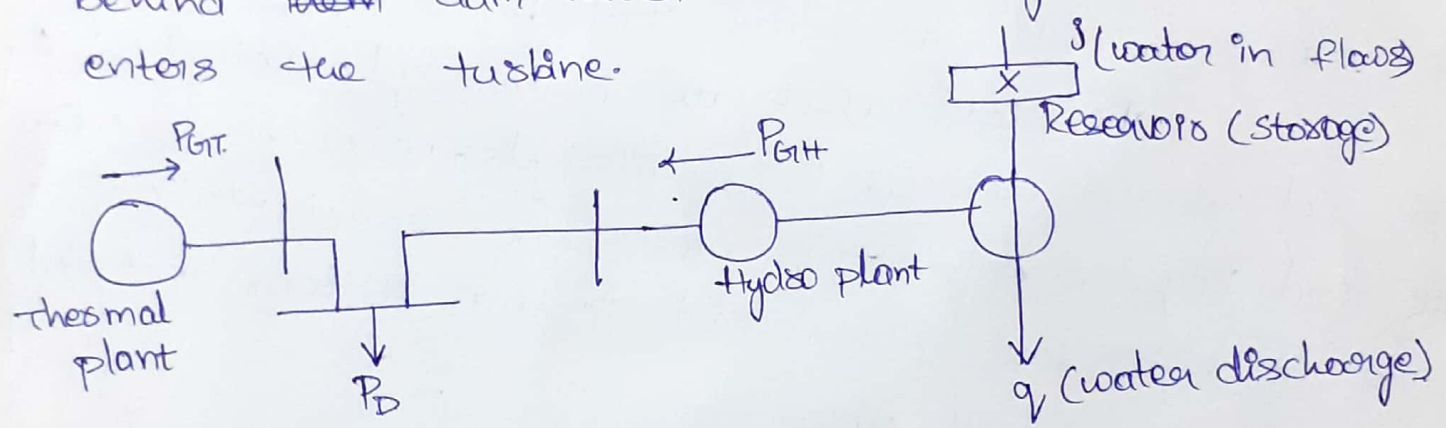 behind dam
enters the turbine.
J (water in flow)
X
Reseavoir (storage)
PGT.
PGH
Hydro plant
Thermal
plant
PD
q (water discharge)